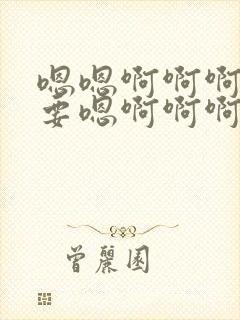 嗯嗯啊啊啊
要嗯啊啊啊
曾麗園